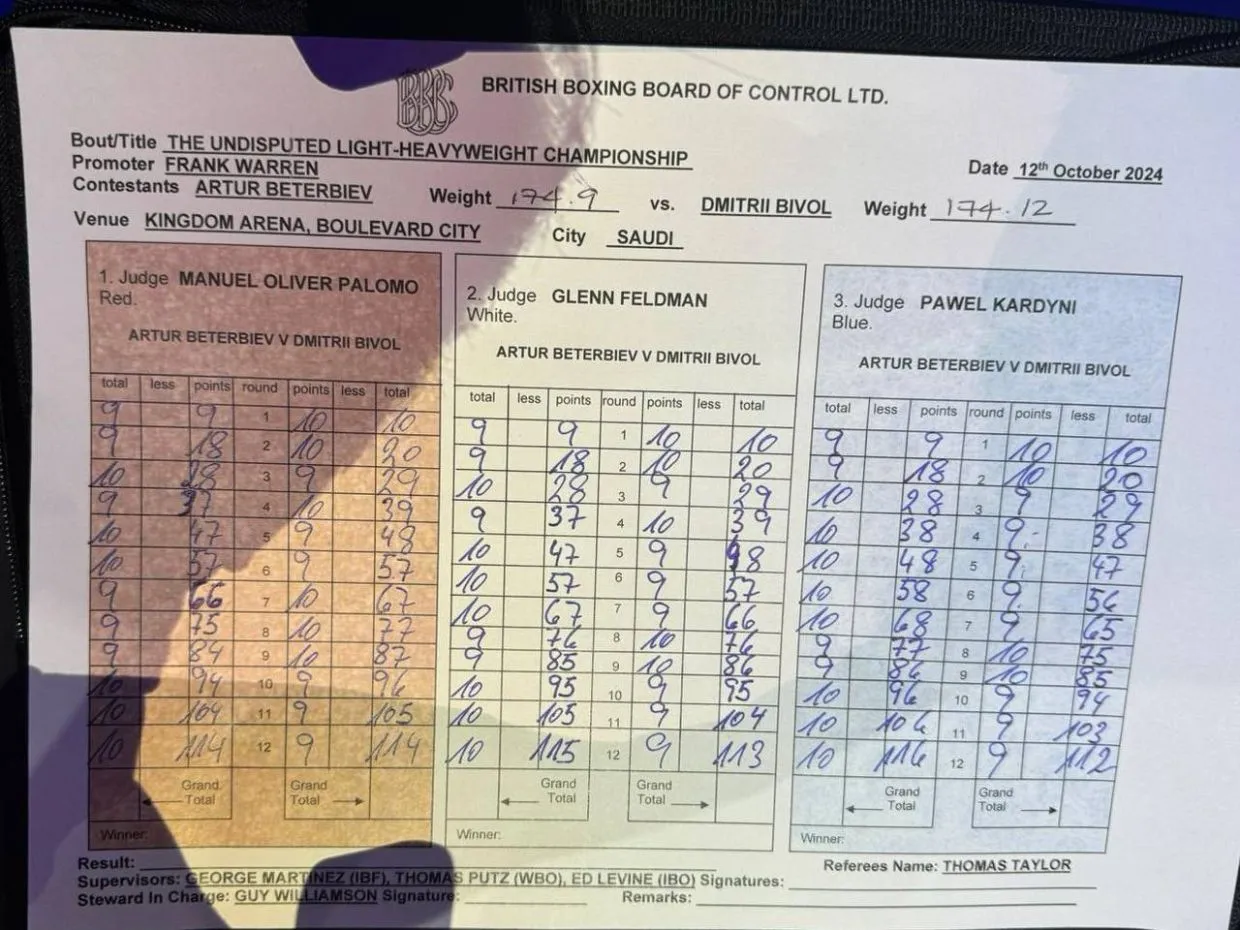 BBBC
BRITISH BOXING BOARD OF CONTROL LTD.
Bout/Title THE UNDISPUTED LIGHT-HEAVYWEIGHT CHAMPIONSHIP
Promoter FRANK WARREN
Date 12th October 2024
Contestants ARTUR BETERBIEV Weight 174.9 vs. DMITRII BIVOL Weight 174.12
Venue KINGDOM ARENA, BOULEVARD CITY City SAUDI
1. Judge MANUEL OLIVER PALOMO
Red.
ARTUR BETERBIEV V DMITRII BIVOL
total less points round points less total
9 9 1 10 10
9 18 2 10 20
10 28 3 9 29
9 37 4 10 39
10 47 5 9 48
10 57 6 9 57
9 66 7 10 67
9 75 8 10 77
9 84 9 10 87
10 94 10 9 96
10 104 11 9 105
10 114 12 9 114
Grand Grand
Total Total
Winner:
2. Judge GLENN FELDMAN
White.
ARTUR BETERBIEV V DMITRII BIVOL
total less points round points less total
9 9 1 10 10
9 18 2 10 20
10 28 3 9 29
9 37 4 10 39
10 47 5 9 48
10 57 6 9 57
10 67 7 9 66
9 76 8 10 76
9 85 9 10 86
10 95 10 9 95
10 105 11 9 104
10 115 12 9 113
Grand Grand
Total Total
Winner:
3. Judge PAWEL KARDYNI
Blue.
ARTUR BETERBIEV V DMITRII BIVOL
total less points round points less total
9 9 1 10 10
9 18 2 10 20
10 28 3 9 29
10 38 4 9 38
10 48 5 9 47
10 58 6 9 56
10 68 7 9 65
9 77 8 10 75
9 86 9 10 85
10 96 10 9 94
10 106 11 9 103
10 116 12 9 112
Grand Grand
Total Total
Winner:
Result:
Referees Name: THOMAS TAYLOR
Supervisors: GEORGE MARTINEZ (IBF), THOMAS PUTZ (WBO), ED LEVINE (IBO) Signatures:
Steward In Charge: GUY WILLIAMSON Signature: Remarks: